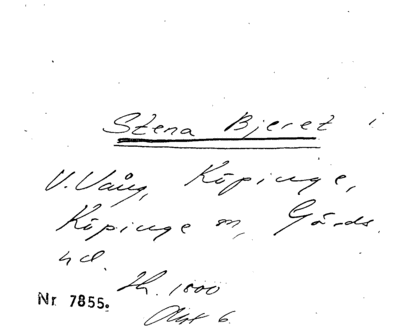 Stena Bjeret i
V. Vång, Köpinge,
Köpinge sn, Gärds
hd.
Sk. 1:000
Akt 6.
Nr 7855.